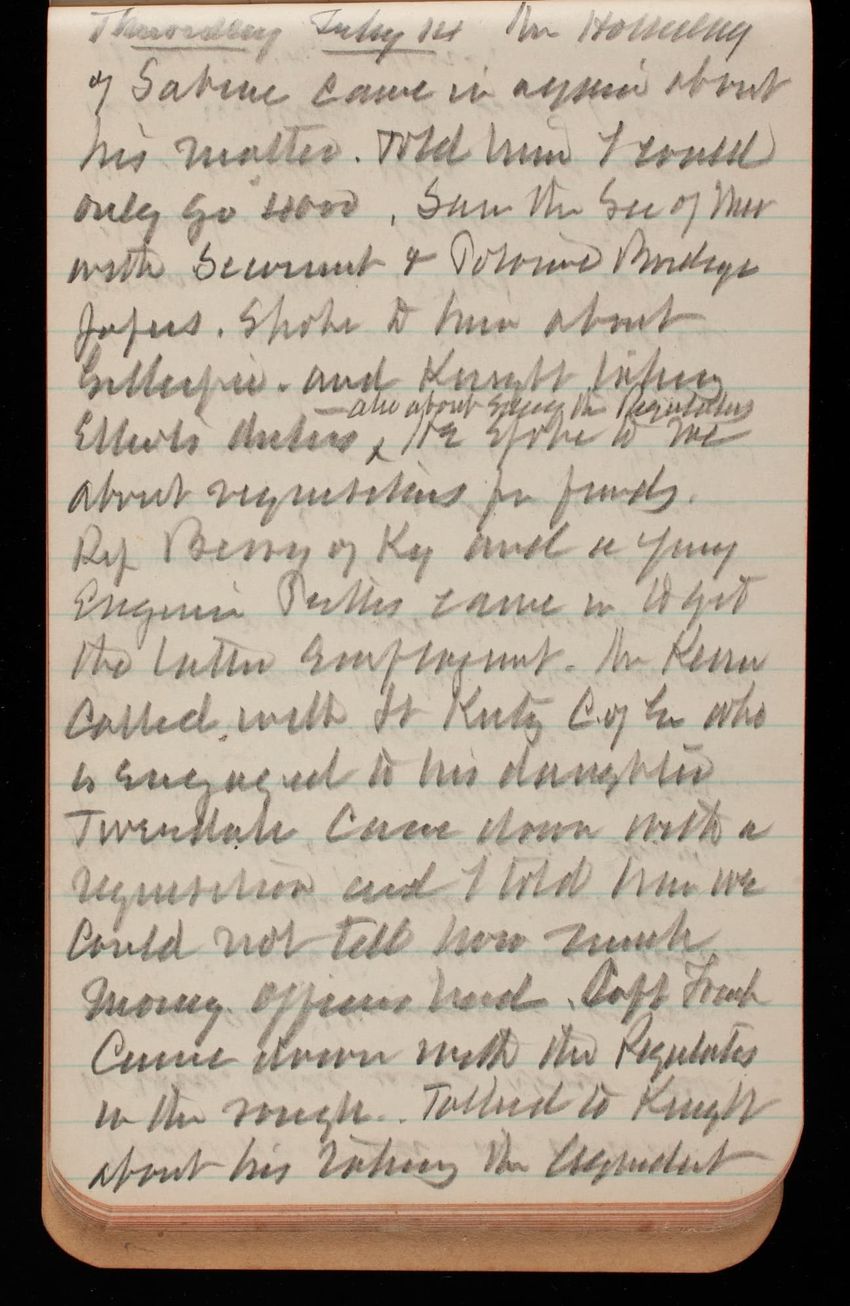 Thursday July 14 Mr Holliday
of Sabine came in again about
his matter. Told him I could
only go 4000, Saw the Sec of War
with Securment & Potomac Bridge
papers. Spoke to him about
Gillespie. and Knight taking
also about the Regulations
Elliots duties, He spoke to me
about requisitions for funds.
Rep Berry of Ky and a young
Engineer came in to get
the latter employment. Mr Keim
called, with Lt Kutz C. of En who
is engaged to his daughter
Tweedale came down with a
requisition and I told him we
could not tell how much
money officers had. Capt
came down with the Regulations
in the rough. Talked to Knight
about his taking the